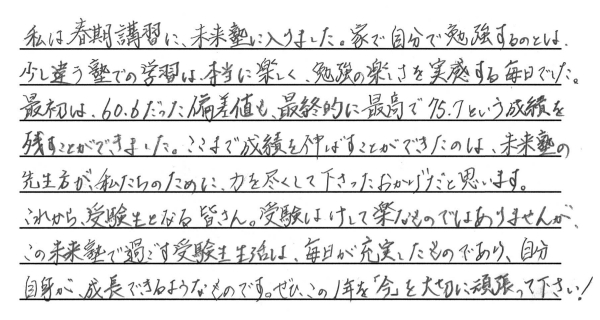 私は春期講習に、未来塾に入りました。家で自分で勉強するのとは、
少し違う塾での学習は、本当に楽しく、勉強の楽しさを実感する毎日でした。
最初は、60.6だった偏差値も、最終的に最高で75.7という成績を
残すことができました。ここまで成績を伸ばすことができたのは、未来塾の
先生方が私たちのために、力を尽くして下さったおかげだと思います。
これから、受験生となる皆さん。受験はけして楽なものではありませんが、
この未来塾で過ごす受験生生活は、毎日が充実したものであり、自分
自身が、成長できるようなものです。ぜひ、この1年を「今」を大切に頑張って下さい!